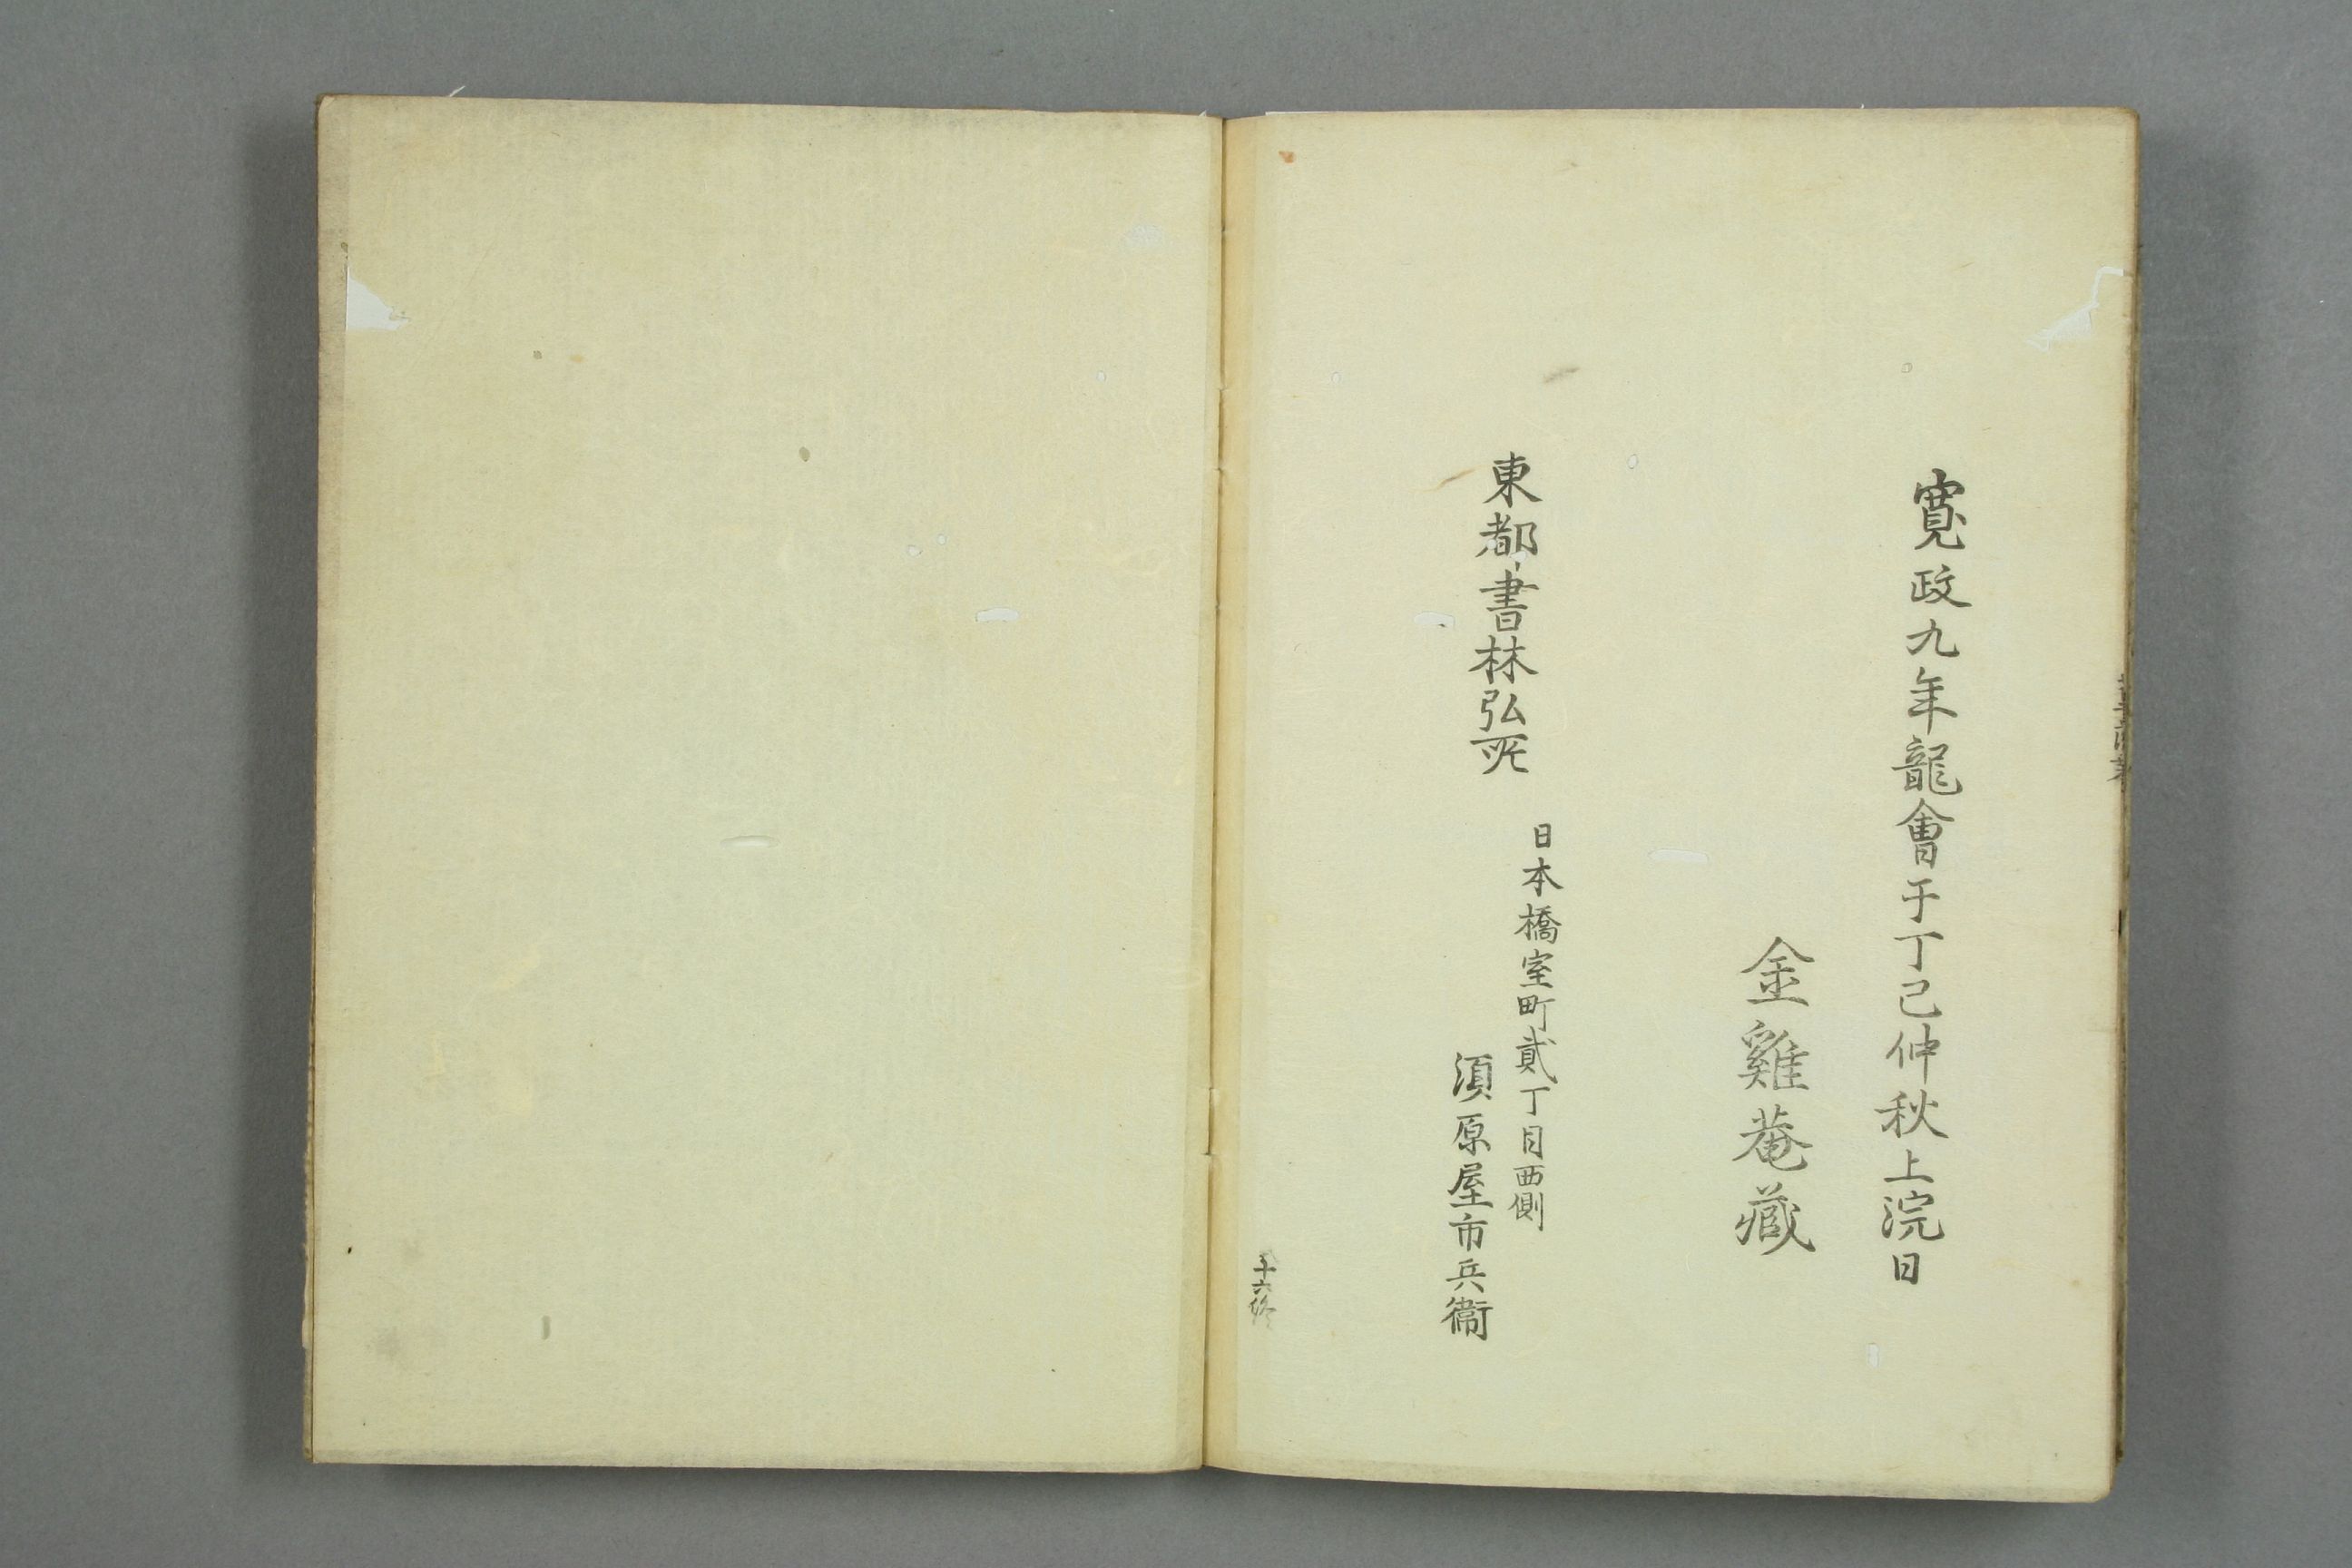 寛政九年龍會于丁巳仲秋上浣日
金雞菴藏
東都書林弘所
日本橋室町貳丁目西側
須原屋市兵衞